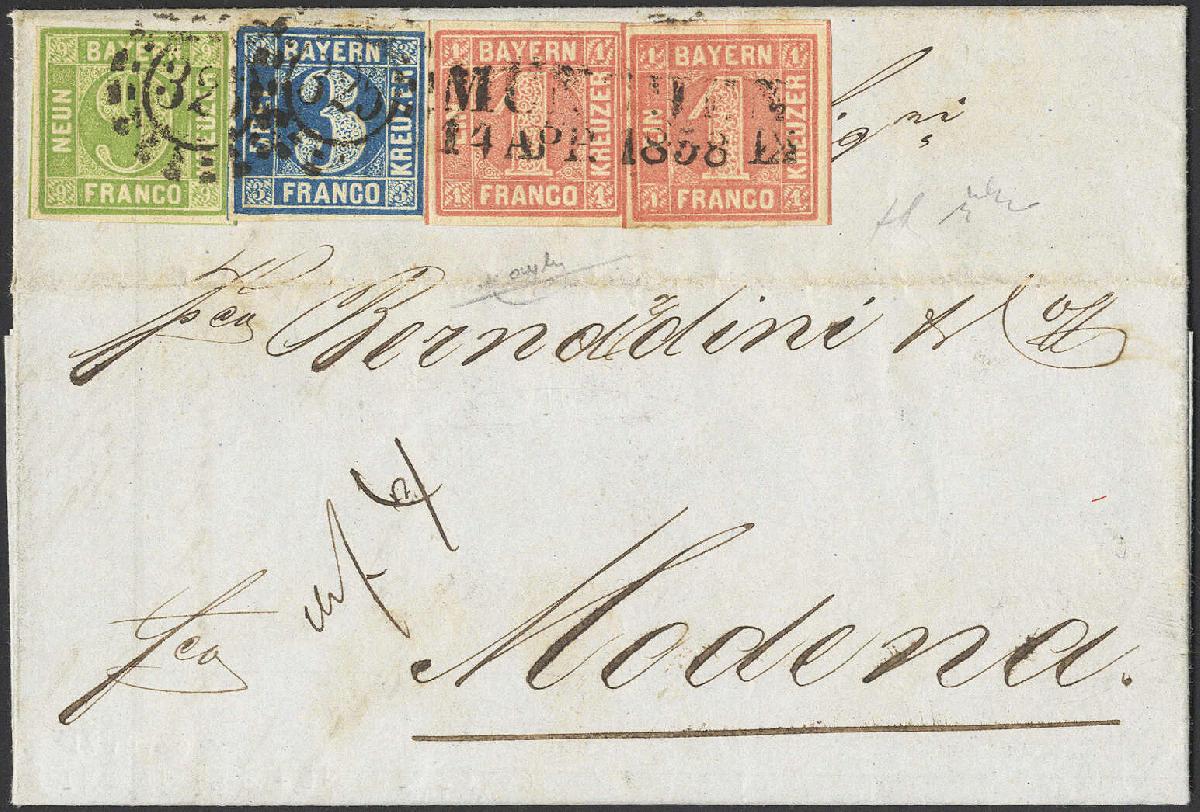 BAYERN BAYERN BAYERN BAYERN
NEUN 9 KREUZER
DREI 3 KREUZER
EIN 1 KREUZER
EIN 1 KREUZER
FRANCO FRANCO FRANCO FRANCO
325 325
MÜNCHEN
14 APR. 1858 IX
Bernardini & C
fco
Modena.